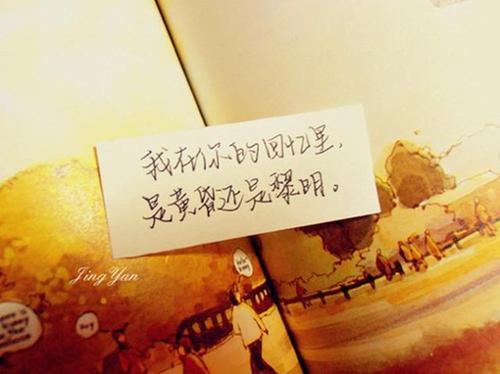 我在你的回忆里，
是黄昏还是黎明。
Jing Yan